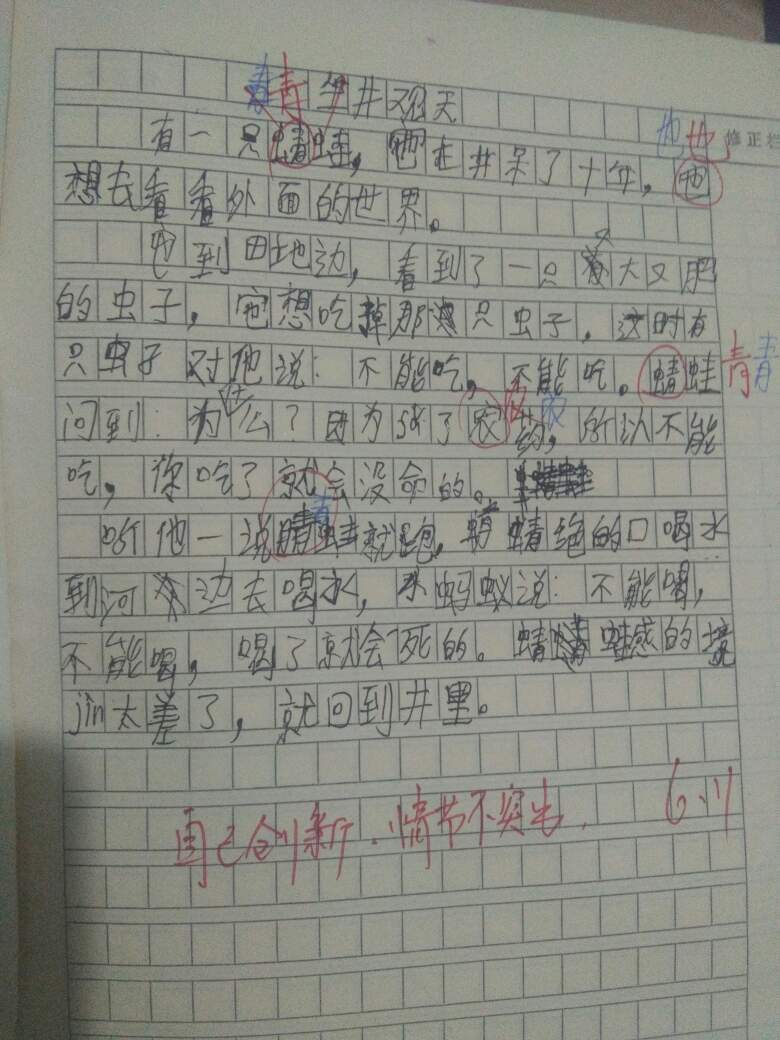 青青蛙井观天
有一只蜻蛙，它在井呆了十年，它 也也 修正栏
想去看看外面的世界。
它到田地边，看到了一只大又肥
的虫子，它想吃掉那只虫子，这时有
只虫子对他说：不能吃，不能吃。蜻蛙 青青
问到：为什么？因为了农药，所以不能 农
吃，你吃了就会没命的。
听他一说蜻蛙就跑，蜻的口喝水 青
到河边去喝水，小蚂蚁说：不能喝，
不能喝，喝了就会死的。蜻蛙感的境
jin太差了，就回到井里。
自己创新．情节不突出． 6.11